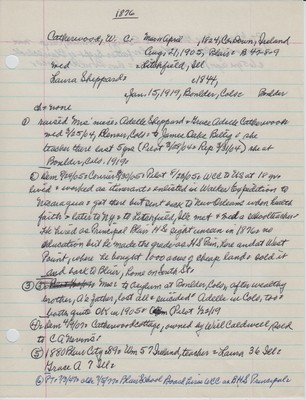 1876
Catherwood, W. C. Mar. April, 1824, Coldown, Ireland
Aug. 21, 1905, Blair = B 4-8-9
wed = Litchfield, Ill
Laura Sheppard = c 1844,
Jan. 15, 1919, Boulder, Colo = Boulder
ch = none
① raised Mrs' nieces Adella Sheppard + Grace Adella Catherwood
wed 2/25/64, Denver, Colo = to James Oake Kelly, she
teacher there last 5 yrs (Pilot 3/25/64 + Rep 3/31/64) she at
Boulder, Colo. 1919.
② Dem 8/24/05 Courier 8/30/05 + Pilot 8/23/05 WCC to US at 18 yrs
lived + worked as steward = enlisted in Walker Expedition to
Nicaragua = got there but sent back to New Orleans when lost
faith = later to NY = to Litchfield, Ill met + wed a schoolteacher
He hired as Principal Blair H S eight unseen in 1870's no
education but he made the grade as H S Prin, here and at West
Point, where he bought 1000 acres of cheap land = sold it
and back to Blair, home on South St
③ Mrs to Asylum at Boulder, Colo, after wealthy
mother, A's father, lost all = suicided Adella in Colo, too =
both quite OK in 1905 = Pilot 7/23/19
④ Dem Catherwood cottage, owned by Will Caldwell, sold
to C A Nevins
⑤ 1880 Blair City 289 = Wm 57 Ireland, teacher = Laura 36 Ill =
Grace A 7 Ill =
⑥ Blair School Board hires WCC as B H S Principal